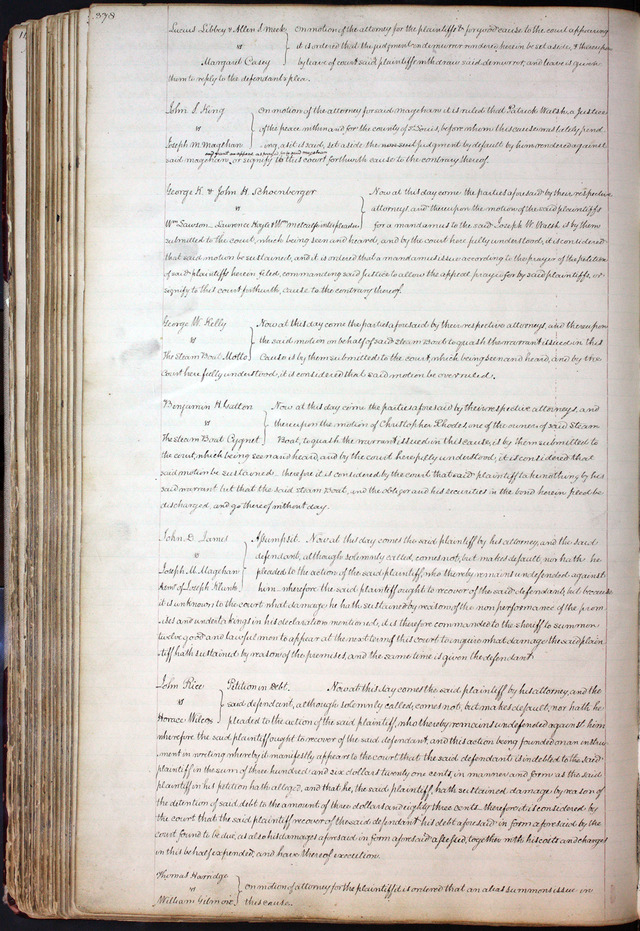 398
Lucius Libby & Allen S. Meek } on motion of the attorney for the plaintiffs & for good cause to the court appearing
vs it is ordered that the judgment on demurrer rendered herein be set aside, & thereupon
Margaret Casey by leave of court said plaintiffs withdraw said demurror, and leave is given
them to reply to the defendants plea.
John S. King } on motion of the attorney for said mageham it is ruled that Patrick Walsh, a Justice
vs of the peace within and for the county of St Louis, before whom this cause was lately pend
Joseph M. Mageham ing, as it is said, set aside the non suit judgment by default by him rendered against
said mageham, or signify to this court forthwith cause to the contrary thereof.
George K. & John H. Schoenberger } Now at this day come the parties aforesaid by their respective
vs attorneys, and thereupon the motion of the said plaintiffs
Wm Lawson, Lawrence Hoyle & Wm Metcalf for a mandamus to the said Joseph W. Walsh, is by them
submitted to the court, which being seen and heard, and by the court here fully understood, it is considered
that said motion be sustained, and it is ordered that a mandamus issue according to the prayer of the petition
of said plaintiffs herein filed, commanding said Justice to allow the appeal prayed for by said plaintiffs, or
signify to this court forthwith, cause to the contrary thereof.
George W. Kelly } Now at this day come the parties aforesaid by their respective attorneys, and thereupon
vs the said motion on behalf of said Steam Boat to quash the warrant issued in this
The Steam Boat Motto Cause is by them submitted to the court, which being seen and heard, and by the
Court here fully understood, it is considered that said motion be overruled.
Benjamin H. Gatton } Now at this day come the parties aforesaid by their respective attorneys, and
vs thereupon the motion of Christopher Rhodes one of the owners of said Steam
The Steam Boat Cygnet Boat, to quash the warrant, issued in this cause, is by them submitted to
the court, which being seen and heard, and by the court here fully understood, it is considered that
said motion be sustained. therefore it is considered by the court that said plaintiff take nothing by his
said warrant but that the said Steam Boat, and the obligor and his securities in the bond herein filed be
discharged, and go thereof without day.
John D. James } Assumpsit. Now at this day comes the said plaintiff by his attorney, and the said
vs defendant, although solemnly called, comes not, but makes default, nor hath he
Joseph M. Mageham pleaded to the action of the said plaintiff, who thereby remains undefended against
Admr of Joseph Klunk him. wherefore the said plaintiff ought to recover of the said defendant, but because
it is unknown to the court what damage he hath sustained by reason of the non performance of the prom
ises and undertakings in his declaration mentioned, it is therefore commanded to the sheriff to summon
twelve good and lawful men to appear at the next term of this court to inquire what damage the said plain
tiff hath sustained by reason of the premises, and the same time is given the defendant.
John Rice } Petition in Debt. Now at this day comes the said plaintiff by his attorney, and the
vs said defendant, although solemnly called, comes not, but makes default, nor hath he
Horace Wilcox pleaded to the action of the said plaintiff, who thereby remains undefended against him
wherefore the said plaintiff ought to recover of the said defendant, and this action being founded on an instru
ment in writing whereby it manifestly appears to the court that the said defendant is indebted to the said
plaintiff in the sum of three hundred and six dollars twenty one cents, in manner and form as the said
plaintiff in his petition hath alleged, and that he, the said plaintiff, hath sustained damage by reason of
the detention of said debt to the amount of three dollars and eighty three cents. therefore it is considered by
the court that the said plaintiff recover of the said defendant his debt aforesaid in form aforesaid by the
court found to be due, as also his damages aforesaid in form aforesaid assessed, together with his costs and charges
in this behalf expended, and have thereof execution.
Thomas Harridge } on motion of attorney for the plaintiff it is ordered that an alias summons issue in
vs
William Gilmore this cause.